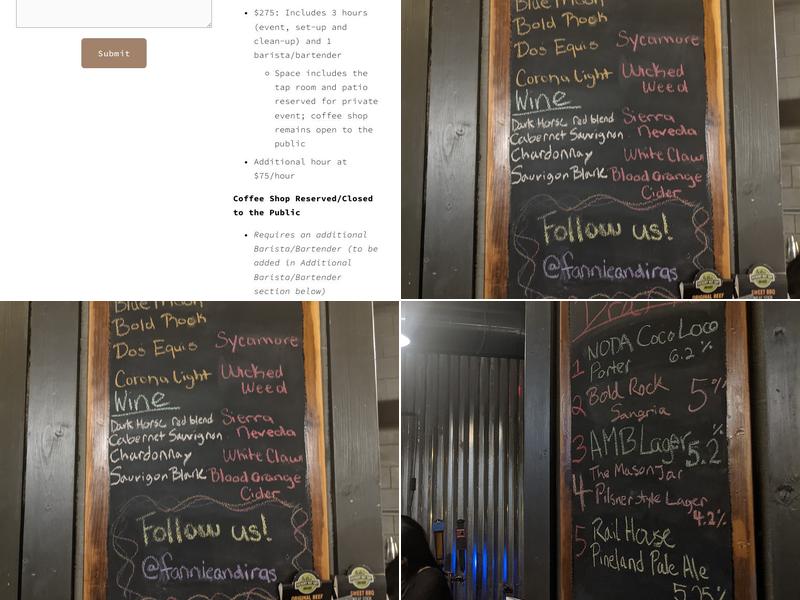 Submit
• $275: Includes 3 hours
(event, set-up and
clean-up) and 1
barista/bartender
○ Space includes the
tap room and patio
reserved for private
event; coffee shop
remains open to the
public
• Additional hour at
$75/hour
Coffee Shop Reserved/Closed
to the Public
• Requires an additional
Barista/Bartender (to be
added in Additional
Barista/Bartender
section below)
Blue Moon
Bold Rock
Dos Equis
Corona Light
Wine
Dark Horse red blend
Cabernet Sauvignon
Chardonnay
Sauvigon Blank
Sycamore
Wicked
Weed
Sierra
Nevada
White Claw
Blood Orange
Cider
Follow us!
@fannieandiras
ORIGINAL BEEF
SWEET BBQ
Blue Moon
Bold Rock
Dos Equis
Corona Light
Wine
Dark Horse red blend
Cabernet Sauvignon
Chardonnay
Sauvigon Blank
Sycamore
Wicked
Weed
Sierra
Nevada
White Claw
Blood Orange
Cider
Follow us!
@fannieandiras
ORIGINAL BEEF
SWEET BBQ
1 NODA Coco Loco
Porter 6.2%
2 Bold Rock 5%
Sangria
3 AMB Lager 5.2%
4 The Mason Jar
Pilsner style Lager
4.2%
5 Rail House
Pineland Pale Ale
5.25%